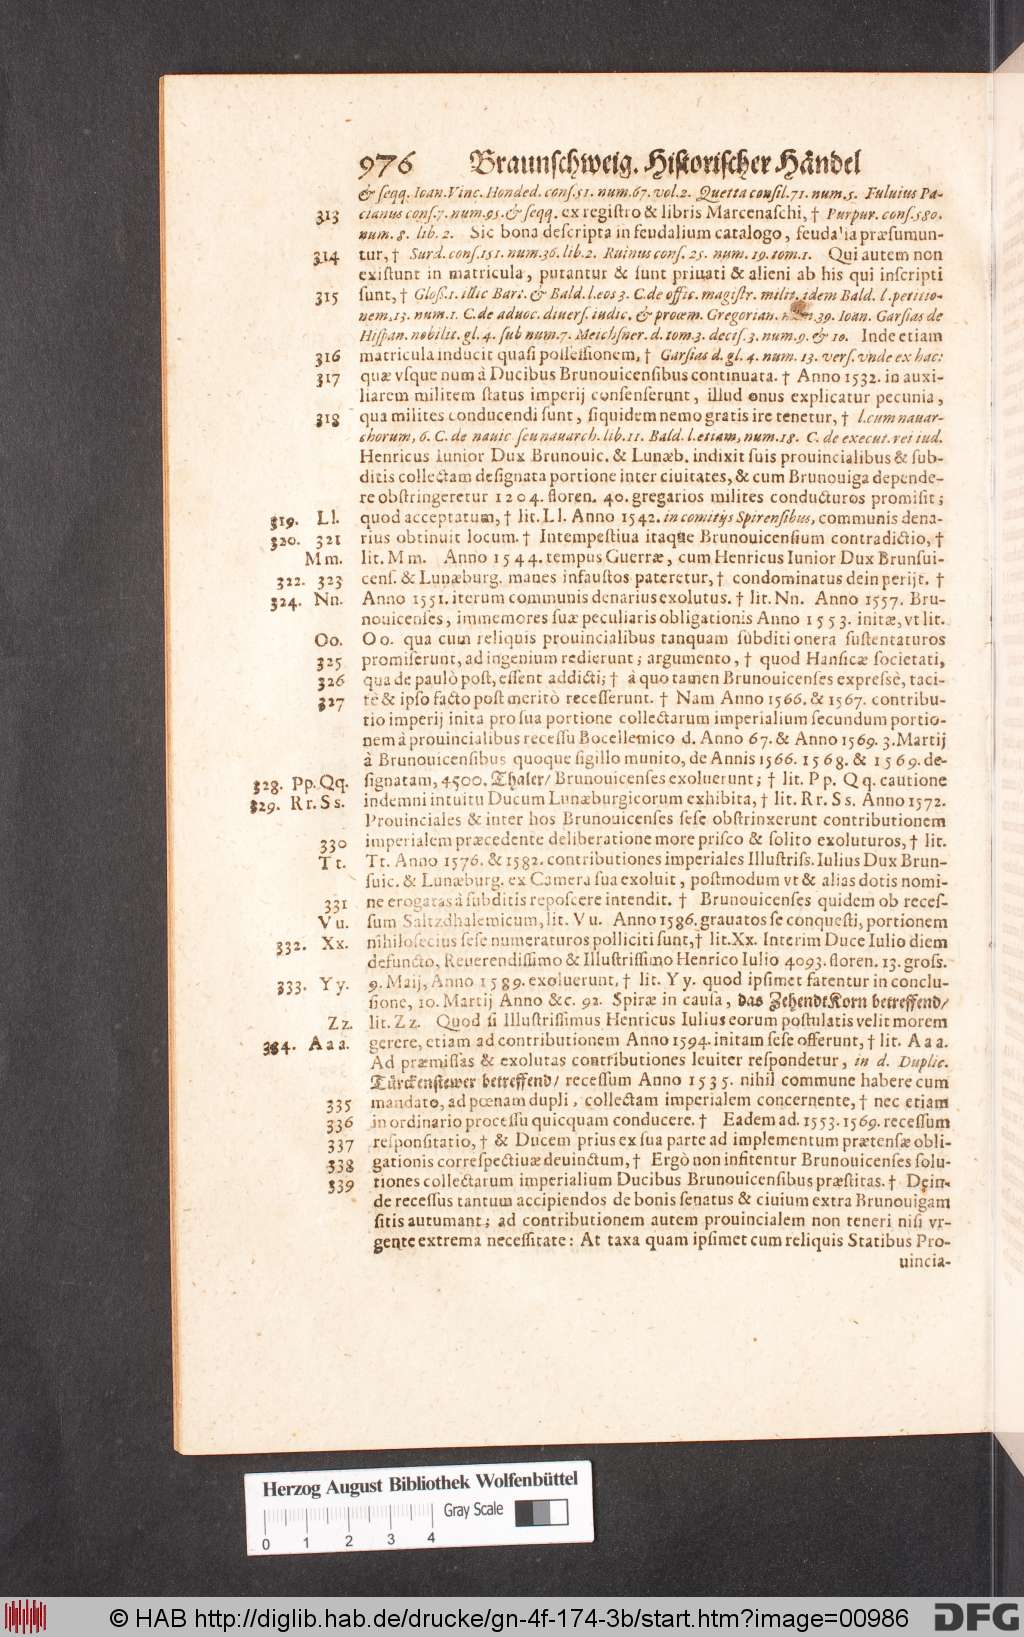 976 Braunſchweig. Hiſtoriſcher Händel
& ſeqq. Ioan. Vinc. Honded. conſ. 51. num. 67. vol. 2. Quetta conſil. 71. num. 5. Fuluius Pa-
313 cianus conſ. 7. num. 95. & ſeqq. ex regiſtro & libris Marcenaſchi, † Purpur. conſ. 580.
num. 8. lib. 2. Sic bona deſcripta in feudalium catalogo, feudalia præſumun-
314 tur, † Surd. conſ. 151. num. 36. lib. 2. Ruinus conſ. 25. num. 19. tom. 1. Qui autem non
exiſtunt in matricula, putantur & ſunt priuati & alieni ab his qui inſcripti
315 ſunt, † Gloſſ. 1. illic Bart. & Bald. l. eos 3. C. de offic. magiſtr. milit. idem Bald. l. petitio-
nem. 13. num. 1. C. de aduoc. diuerſ. iudic. & proœm. Gregorian. 39. Ioan. Garſias de
Hiſpan. nobilit. gl. 4. ſub num. 7. Meichſner. d. tom. 3. deciſ. 3. num. 9. & 10. Inde etiam
316 matricula inducit quaſi poſſeſſionem, † Garſias d. gl. 4. num. 13. verſ. vnde ex hac:
317 quæ vſque num à Ducibus Brunouicenſibus continuata. † Anno 1532. in auxi-
liarem militem ſtatus imperij conſenſerunt, illud onus explicatur pecunia,
318 qua milites conducendi ſunt, ſiquidem nemo gratis ire tenetur, † l. cum nauar-
chorum, 6. C. de nauic ſeu nauarch. lib. 11. Bald. l. etiam, num. 18. C. de execut. rei iud.
Henricus Iunior Dux Brunouic. & Lunæb. indixit ſuis prouincialibus & ſub-
ditis collectam deſignata portione inter ciuitates, & cum Brunouiga depende-
re obſtringeretur 1204. floren. 40. gregarios milites conducturos promiſit;
319. Ll. quod acceptatum, † lit. Ll. Anno 1542. in comitijs Spirenſibus, communis dena-
320. 321 rius obtinuit locum. † Intempeſtiua itaque Brunouicenſium contradictio, †
Mm. lit. Mm. Anno 1544. tempus Guerræ, cum Henricus Iunior Dux Brunſui-
322. 323 cenſ. & Lunæburg. manes infauſtos pateretur, † condominatus dein perijt. †
324. Nn. Anno 1551. iterum communis denarius exolutus. † lit. Nn. Anno 1557. Bru-
nouicenſes, immemores ſuæ peculiaris obligationis Anno 1553. initæ, vt lit.
Oo. Oo. qua cum reliquis prouincialibus tanquam ſubditi onera ſuſtentaturos
325 promiſerunt, ad ingenium redierunt; argumento, † quod Hanſicæ ſocietati,
326 qua de paulò poſt, eſſent addicti; † à quo tamen Brunouicenſes expreſsè, taci-
327 tè & ipſo facto poſt meritò receſſerunt. † Nam Anno 1566. & 1567. contribu-
tio imperij inita pro ſua portione collectarum imperialium ſecundum portio-
nem à prouincialibus receſſu Bocellemico d. Anno 67. & Anno 1569. 3. Martij
à Brunouicenſibus quoque ſigillo munito, de Annis 1566. 1568. & 1569. de-
328. Pp. Qq. ſignatam, 4500. Thaler/ Brunouicenſes exoluerunt; † lit. Pp. Qq. cautione
329. Rr. Ss. indemni intuitu Ducum Lunæburgicorum exhibita, † lit. Rr. Ss. Anno 1572.
Prouinciales & inter hos Brunouicenſes ſeſe obſtrinxerunt contributionem
330 imperialem præcedente deliberatione more priſco & ſolito exoluturos, † lit.
Tt. Tt. Anno 1576. & 1582. contributiones imperiales Illuſtriſs. Iulius Dux Brun-
ſuic. & Lunæburg. ex Camera ſua exoluit, poſtmodum vt & alias dotis nomi-
331 ne erogatas à ſubditis repoſcere intendit. † Brunouicenſes quidem ob receſ-
Vu. ſum Saltzdhalemicum, lit. Vu. Anno 1586. grauatos ſe conqueſti, portionem
332. Xx. nihiloſecius ſeſe numeraturos polliciti ſunt, † lit. Xx. Interim Duce Iulio diem
defuncto, Reuerendiſſimo & Illuſtriſſimo Henrico Iulio 4093. floren. 13. groſſ.
333. Yy. 9. Maij, Anno 1589. exoluerunt, † lit. Yy. quod ipſimet fatentur in conclu-
ſione, 10. Martij Anno &c. 92. Spiræ in cauſa, das ZehendtKorn betreffend/
Zz. lit. Zz. Quod ſi Illuſtriſſimus Henricus Iulius eorum poſtulatis velit morem
334. Aaa. gerere, etiam ad contributionem Anno 1594. initam ſeſe offerunt, † lit. Aaa.
Ad præmiſſas & exolutas contributiones leuiter reſpondetur, in d. Duplic.
Türckenſtewer betreffend/ receſſum Anno 1535. nihil commune habere cum
335 mandato, ad pœnam dupli, collectam imperialem concernente, † nec etiam
336 in ordinario proceſſu quicquam conducere. † Eadem ad. 1553. 1569. receſſum
337 reſponſitatio, † & Ducem prius ex ſua parte ad implementum prætenſæ obli-
338 gationis correſpectiuæ deuinctum, † Ergò non infitentur Brunouicenſes ſolu-
339 tiones collectarum imperialium Ducibus Brunouicenſibus præſtitas. † Dein-
de receſſus tantum accipiendos de bonis ſenatus & ciuium extra Brunouigam
ſitis autumant; ad contributionem autem prouincialem non teneri niſi vr-
gente extrema neceſſitate: At taxa quam ipſimet cum reliquis Statibus Pro-
uincia-
Herzog August Bibliothek Wolfenbüttel
Gray Scale
0 1 2 3 4
© HAB http://diglib.hab.de/drucke/gn-4f-174-3b/start.htm?image=00986 DFG